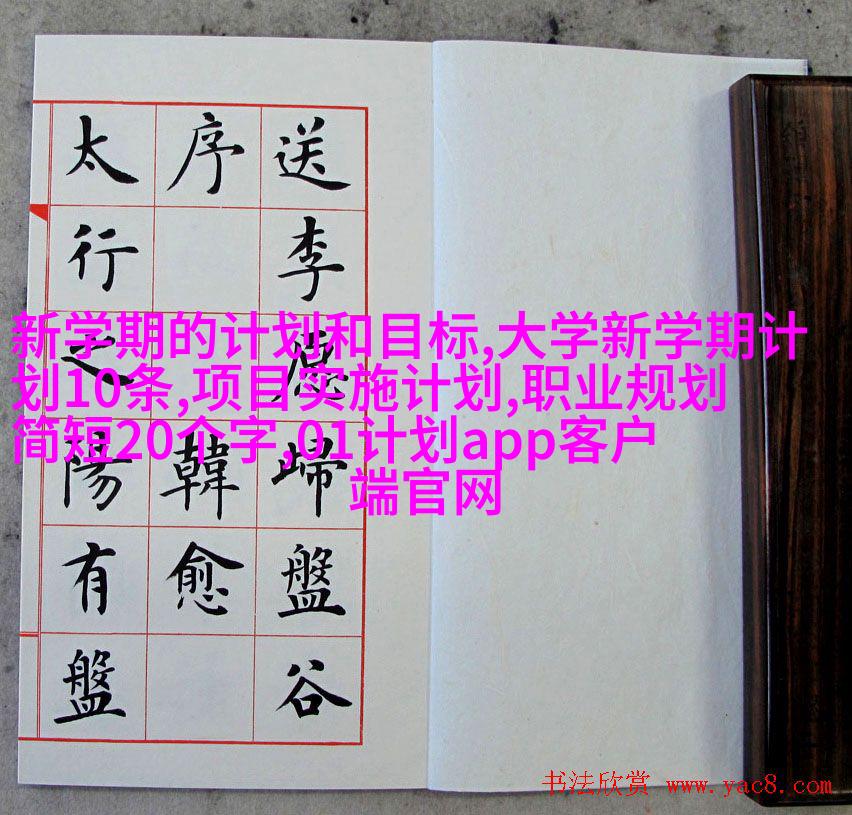 送李愿歸盤谷
序 韓愈
太行之陽有盤
新学期的计划和目标,大学新学期计
划10条,项目实施计划,职业规划
简短20个字,01计划app客户
端官网
书法欣赏 www.yac8.com